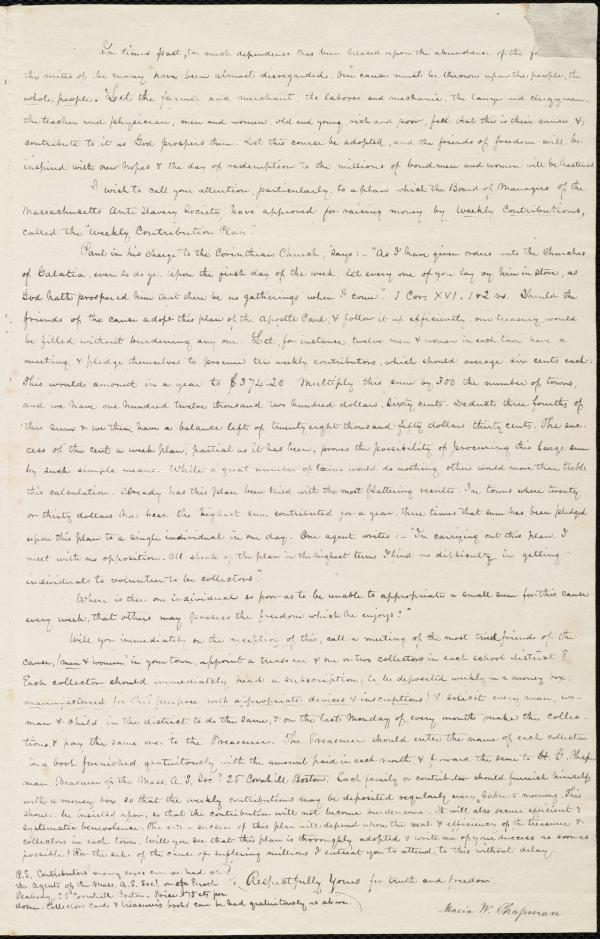 In times past, too much dependence has been placed upon the abundance of the
the mites of the many have been almost disregarded. Our cause must be thrown upon the people, the
whole people. Let the farmer and merchant, the laborer and mechanic, the lawyer and clergyman,
the teacher and physician, men and women, old and young, rich and poor, feel that this is their cause &
contribute to it as God prospers them. Let this course be adopted, and the friends of freedom will be
inspired with new hopes & the day of redemption to the millions of bondmen and women will be hastened
I wish to call your attention, particularly, to a plan which the Board of Managers of the
Massachusetts Anti Slavery Society have approved for raising money by Weekly Contributions,
called the "Weekly Contribution Plan".
Paul in his charge to the Corinthian Church, says:- "As I have given orders unto the Churches
of Galatia, even so do ye. Upon the first day of the week, let every one of you lay by him in store, as
God hath prospered him that there be no gatherings when I come" 1 Cor. XVI. 1 & 2 vs. Should the
friends of the cause adopt this plan of the Apostle Paul, & follow it up efficiently, our treasury would
be filled without burdening any one. Let, for instance, twelve men & women in each town have a
meeting & pledge themselves to procure ten weekly contributors, which should average six cents each:
This would amount in a year to $374.20 Multiply this sum by 300 the number of towns,
and we have one hundred twelve thousand two hundred dollars, sixty cents. Deduct three fourths of
this sum & we then, have a balance left of twenty eight thousand fifty dollars thirty cents. The suc-
cess of the cent a week plan, partial as it has been, proves the possibility of procuring this large sum
by such simple means. While a great number of towns would do nothing, others would more than treble
this calculation. Already has this plan been tried with the most flattering results. In towns where twenty
or thirty dollars has been the highest sum contributed for a year, three times that sum has been pledged
upon this plan to a single individual in one day. One agent writes:- "In carrying out this plan, I
meet with no opposition. All speak of the plan in the highest terms I find no difficulty in getting
individuals to volunteer to be collectors."
Where is there one individual so poor as to be unable to appropriate a small sum for this cause
every week, that others may possess the freedom which he enjoys?"
Will you immediately on the reception of this, call a meeting of the most tried friends of the
cause, (men & women) in your town, appoint a treasurer & one or two collectors in each school district?
Each collector should immediately head a subscription, (to be deposited weekly in a money box,
manufactured for this purpose with appropriate devices & inscriptions) & solicit every man, wo-
man & child in the district to do the same, & on the last Monday of every month make the collec-
tions, & pay the same over to the Treasurer. The Treasurer should enter the name of each collector
in a book furnished gratuitously with the amount paid in each month & forward the same to H. G. Chap-
man, Treasurer of the Mass. A. S. Soc? 25 Cornhill, Boston. Each family or contributor should furnish himself
with a money box so that the weekly contributions may be deposited regularly every Sabbath morning. This
should be insisted upon, so that the contribution will not become burdensome. It will also secure efficient &
systematic benevolence. The entire success of this plan will depend upon the zeal & efficiency of the treasurer &
collectors in each town. Will you see that this plan is thoroughly adopted & write me of your success as soon as
possible? For the sake of the cause of suffering millions I entreat you to attend to this without delay.
P.S. Contributors money boxes can be had of
the Agents of the Mass. A. S. Soc?, or of Enoch
Peabody, 25 Cornhill Boston. Price cts per
dozen. Collectors cards & treasurer's books can be had gratuitously as above.
Respectfully Yours for truth and freedom
Maria W. Chapman